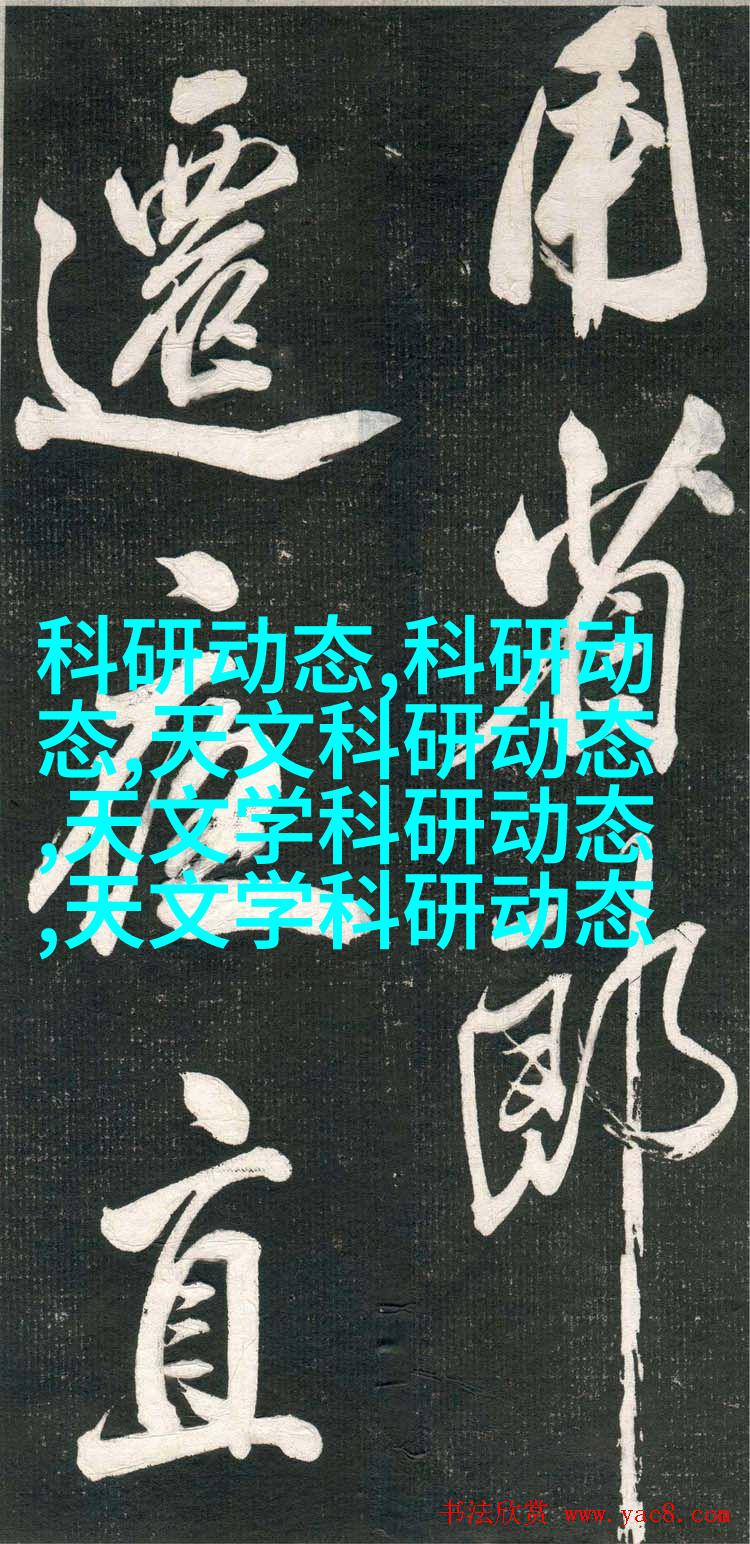 用省郎
科研动态,科研动
态,天文科研动态
,天文学科研动态
,天文学科研动态
书法欣赏 www.yac8.com